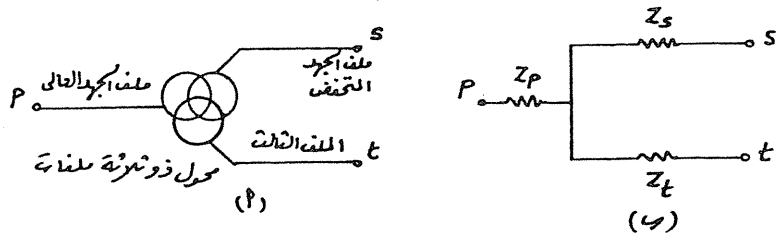 P
ملف الجهد العالى
s
ملف الجهد
المنخفض
الملف الثالث
t
محول ذو ثلاثة ملفات
(أ)
P
Zp
Zs
s
Zt
t
(ب)